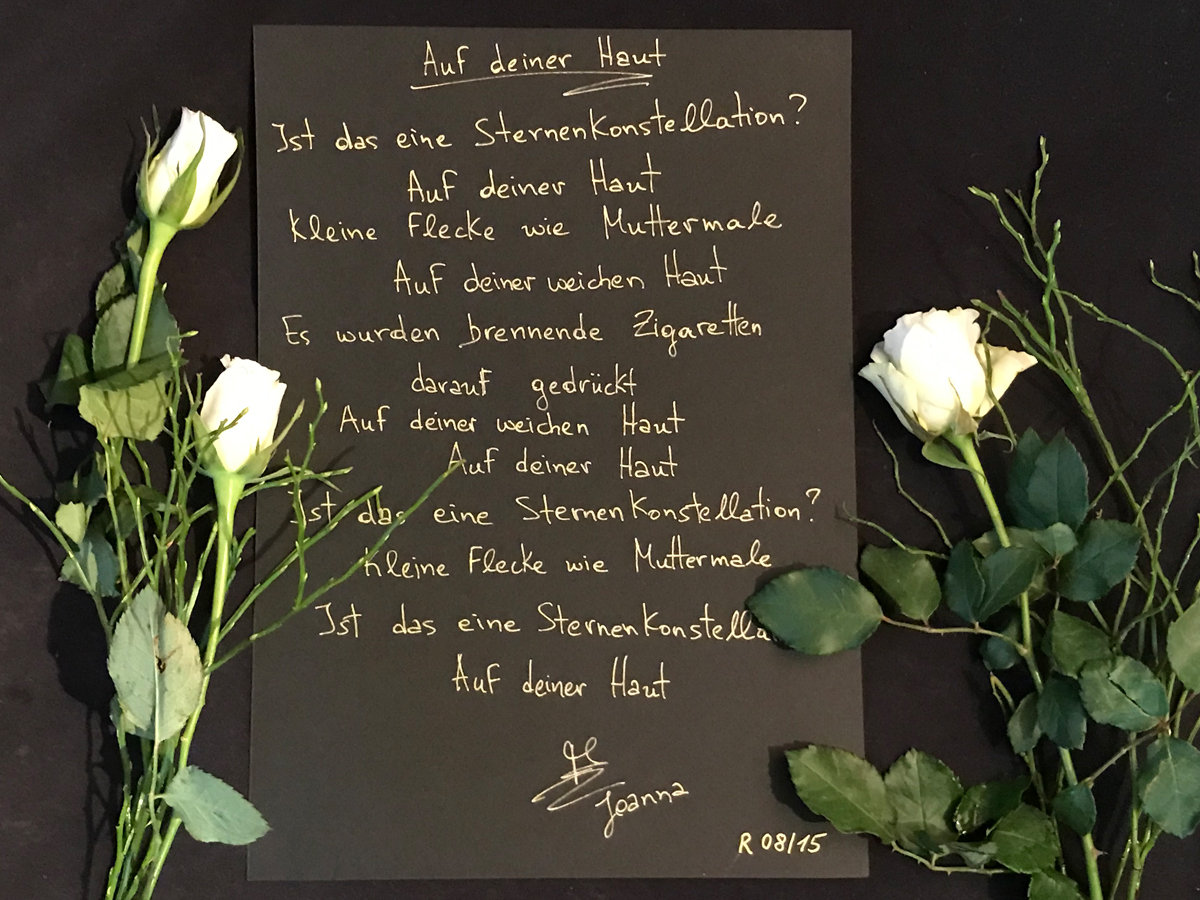 Auf deiner Haut
Ist das eine Sternenkonstellation?
Auf deiner Haut
kleine Flecke wie Muttermale
Auf deiner weichen Haut
Es wurden brennende Zigaretten
darauf gedrückt
Auf deiner weichen Haut
Auf deiner Haut
Ist das eine Sternenkonstellation?
kleine Flecke wie Muttermale
Ist das eine Sternenkonstella
Auf deiner Haut
Joanna
R 08/15